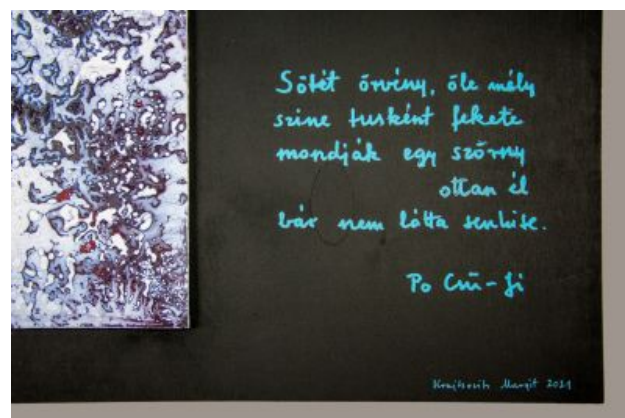 Sötét örvény, öle mély
színe tusként fekete
mondják egy szörny
ottan él
bár nem látta senkise.
Po Csü-ji
Krajcsovich Margit 2021